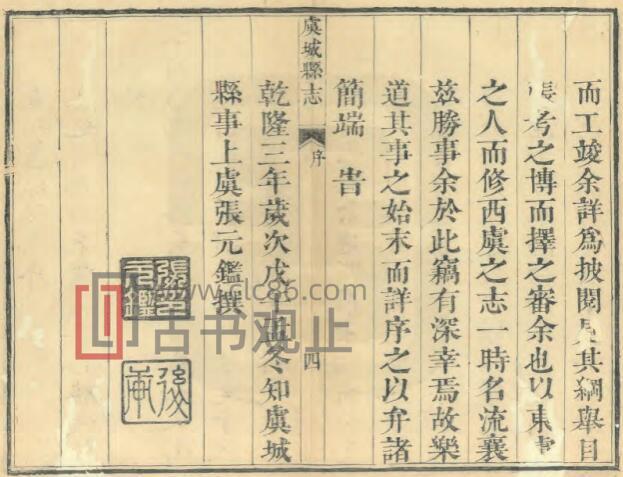 而工竣余詳爲披閱見其綱舉目
張考之博而擇之審余也以東虞
之人而修西虞之志一時名流襄
玆勝事余於此竊有深幸焉故樂
道其事之始末而詳序之以弁諸
簡端 旹
虞城縣志 序 四
乾隆三年歲次戊午孟冬知虞城
縣事上虞張元鑑撰
張印元鑑
www.dlc86.com
古书观止